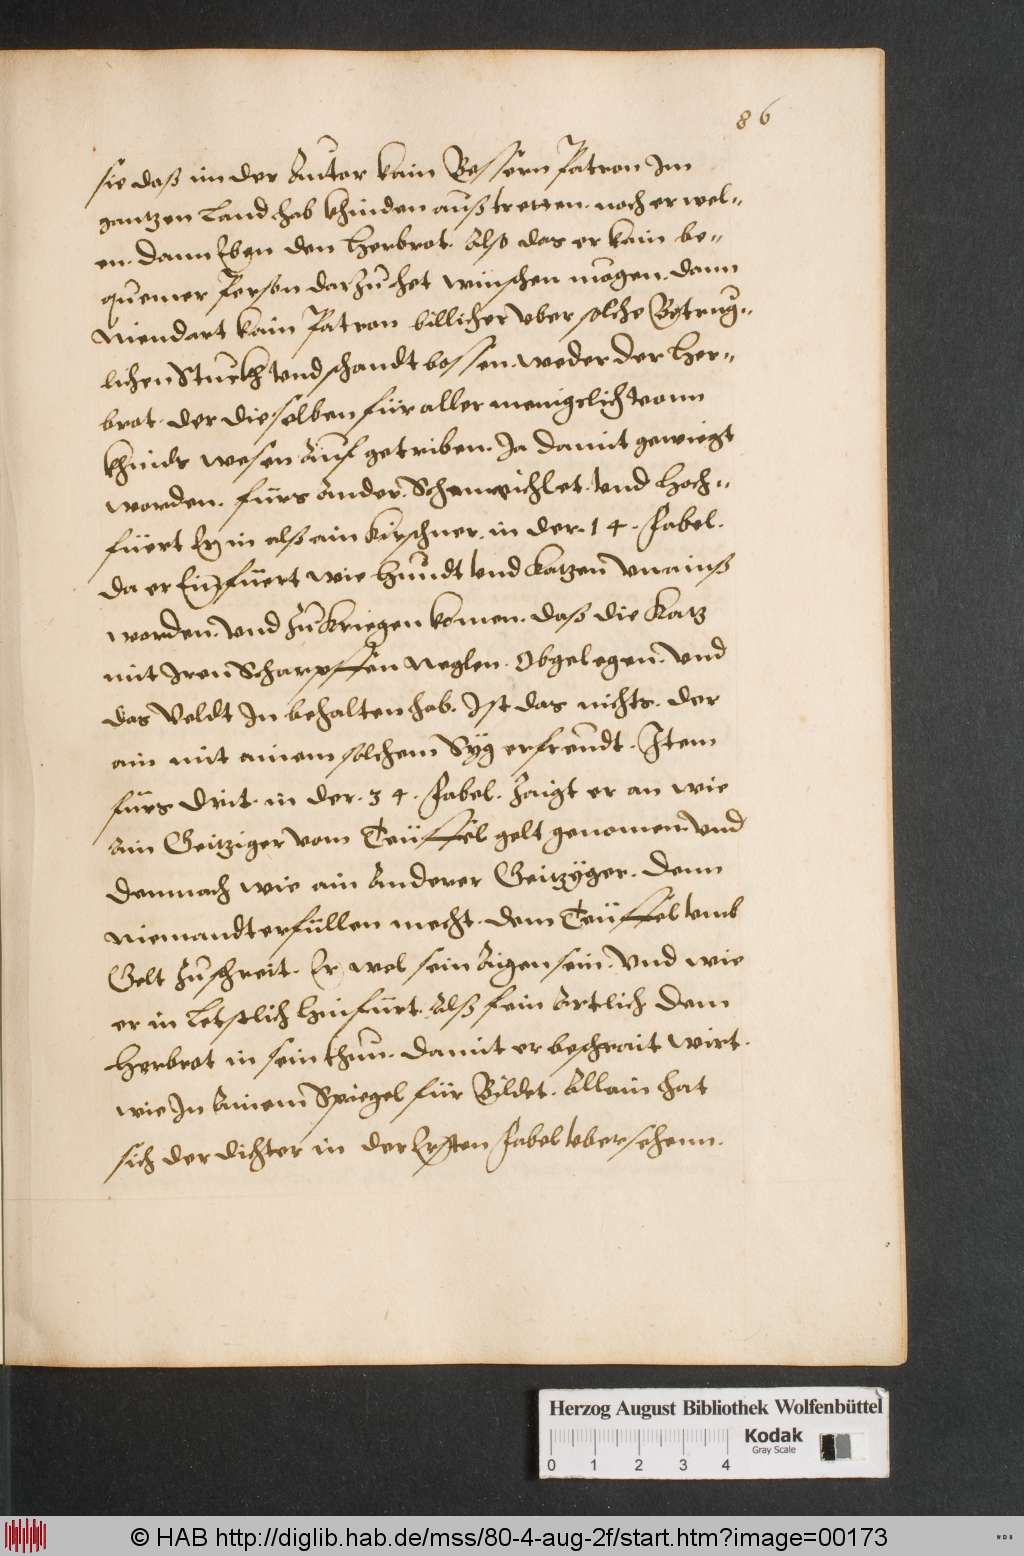 86
sie daß im der Autor kain Bessern Patron Im
gantzen Land hab khinden außtretten. noch erwel-
en. dann Eben den Herbrot. Also das er kain be-
quemer Person darzu het wünschen mögen. dann
Niendart kain Patron billicher vber solche Betrug-
lichen Stuckh vnd schandtbossen. weder der Her-
brot. der dieselben für aller menigclich vonn
khinds wesen Auf getriben. Ja damit gewiegt
worden. fürs Ander. Schmeichlet. vnd hoch-
füert Er in alß ain Kirschner. in der. 14. Fabel.
da er Einfüert wie Hundt vnd Katzen vnainß
worden. vnd zu Kriegen komen. daß die Katz
mit Iren Scharpffen Neglen. Obgelegen. vnd
das Veldt In behalten hab. Ist das nichts. der
ain mit ainem solchem Syg erfreudt. Item
fürs drit. in der. 34. Fabel. Zaigt er an wie
Ain Geitziger vom Teüffel gelt genomen. vnd
demnach wie ain Anderer Geitzyger. denn
Niemandt erfüllen mecht. dem Teüffel vmb
Gelt Zuschreit. Er wel sein Aigen sein. vnd wie
er in Letstlich hinfürt. Alß fein Artlich dem
Herbrot in sein thun. damit er beschrait wirt.
wie In Ainem Spiegel für Bildet. Allain hat
sich der dichter in der Ersten Fabel vbersehenn.
Herzog August Bibliothek Wolfenbüttel
Kodak
Gray Scale
0 1 2 3 4
© HAB http://diglib.hab.de/mss/80-4-aug-2f/start.htm?image=00173